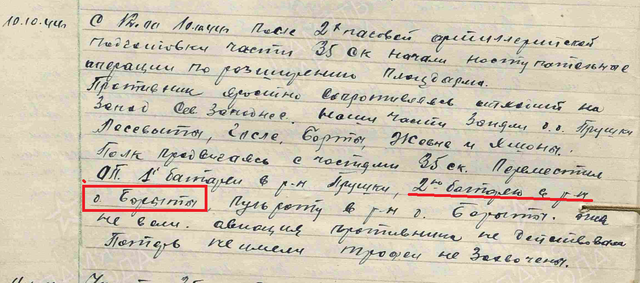 10.10.44г. С 8 ч. по 10 часа после 2х часовой артиллерийской
подготовки части 35 ск начали наступательные
операции по расширению плацдарма.
Противник яростно сопротивляясь отходит на
Запад Сев. Западнее. наши части Заняли о.о. Прушки
Ласевиты, Борты, и
Полк продвигаясь с частями 35 ск. Переместил
ОП 1й батареи в р-н Прушки, 2ю батарею в р-н
о. Борыты, пульроту в р-н о. Борыты. Огня
не вели. авиация противника не действовала
Потерь не имели трофеи не Захвачены.